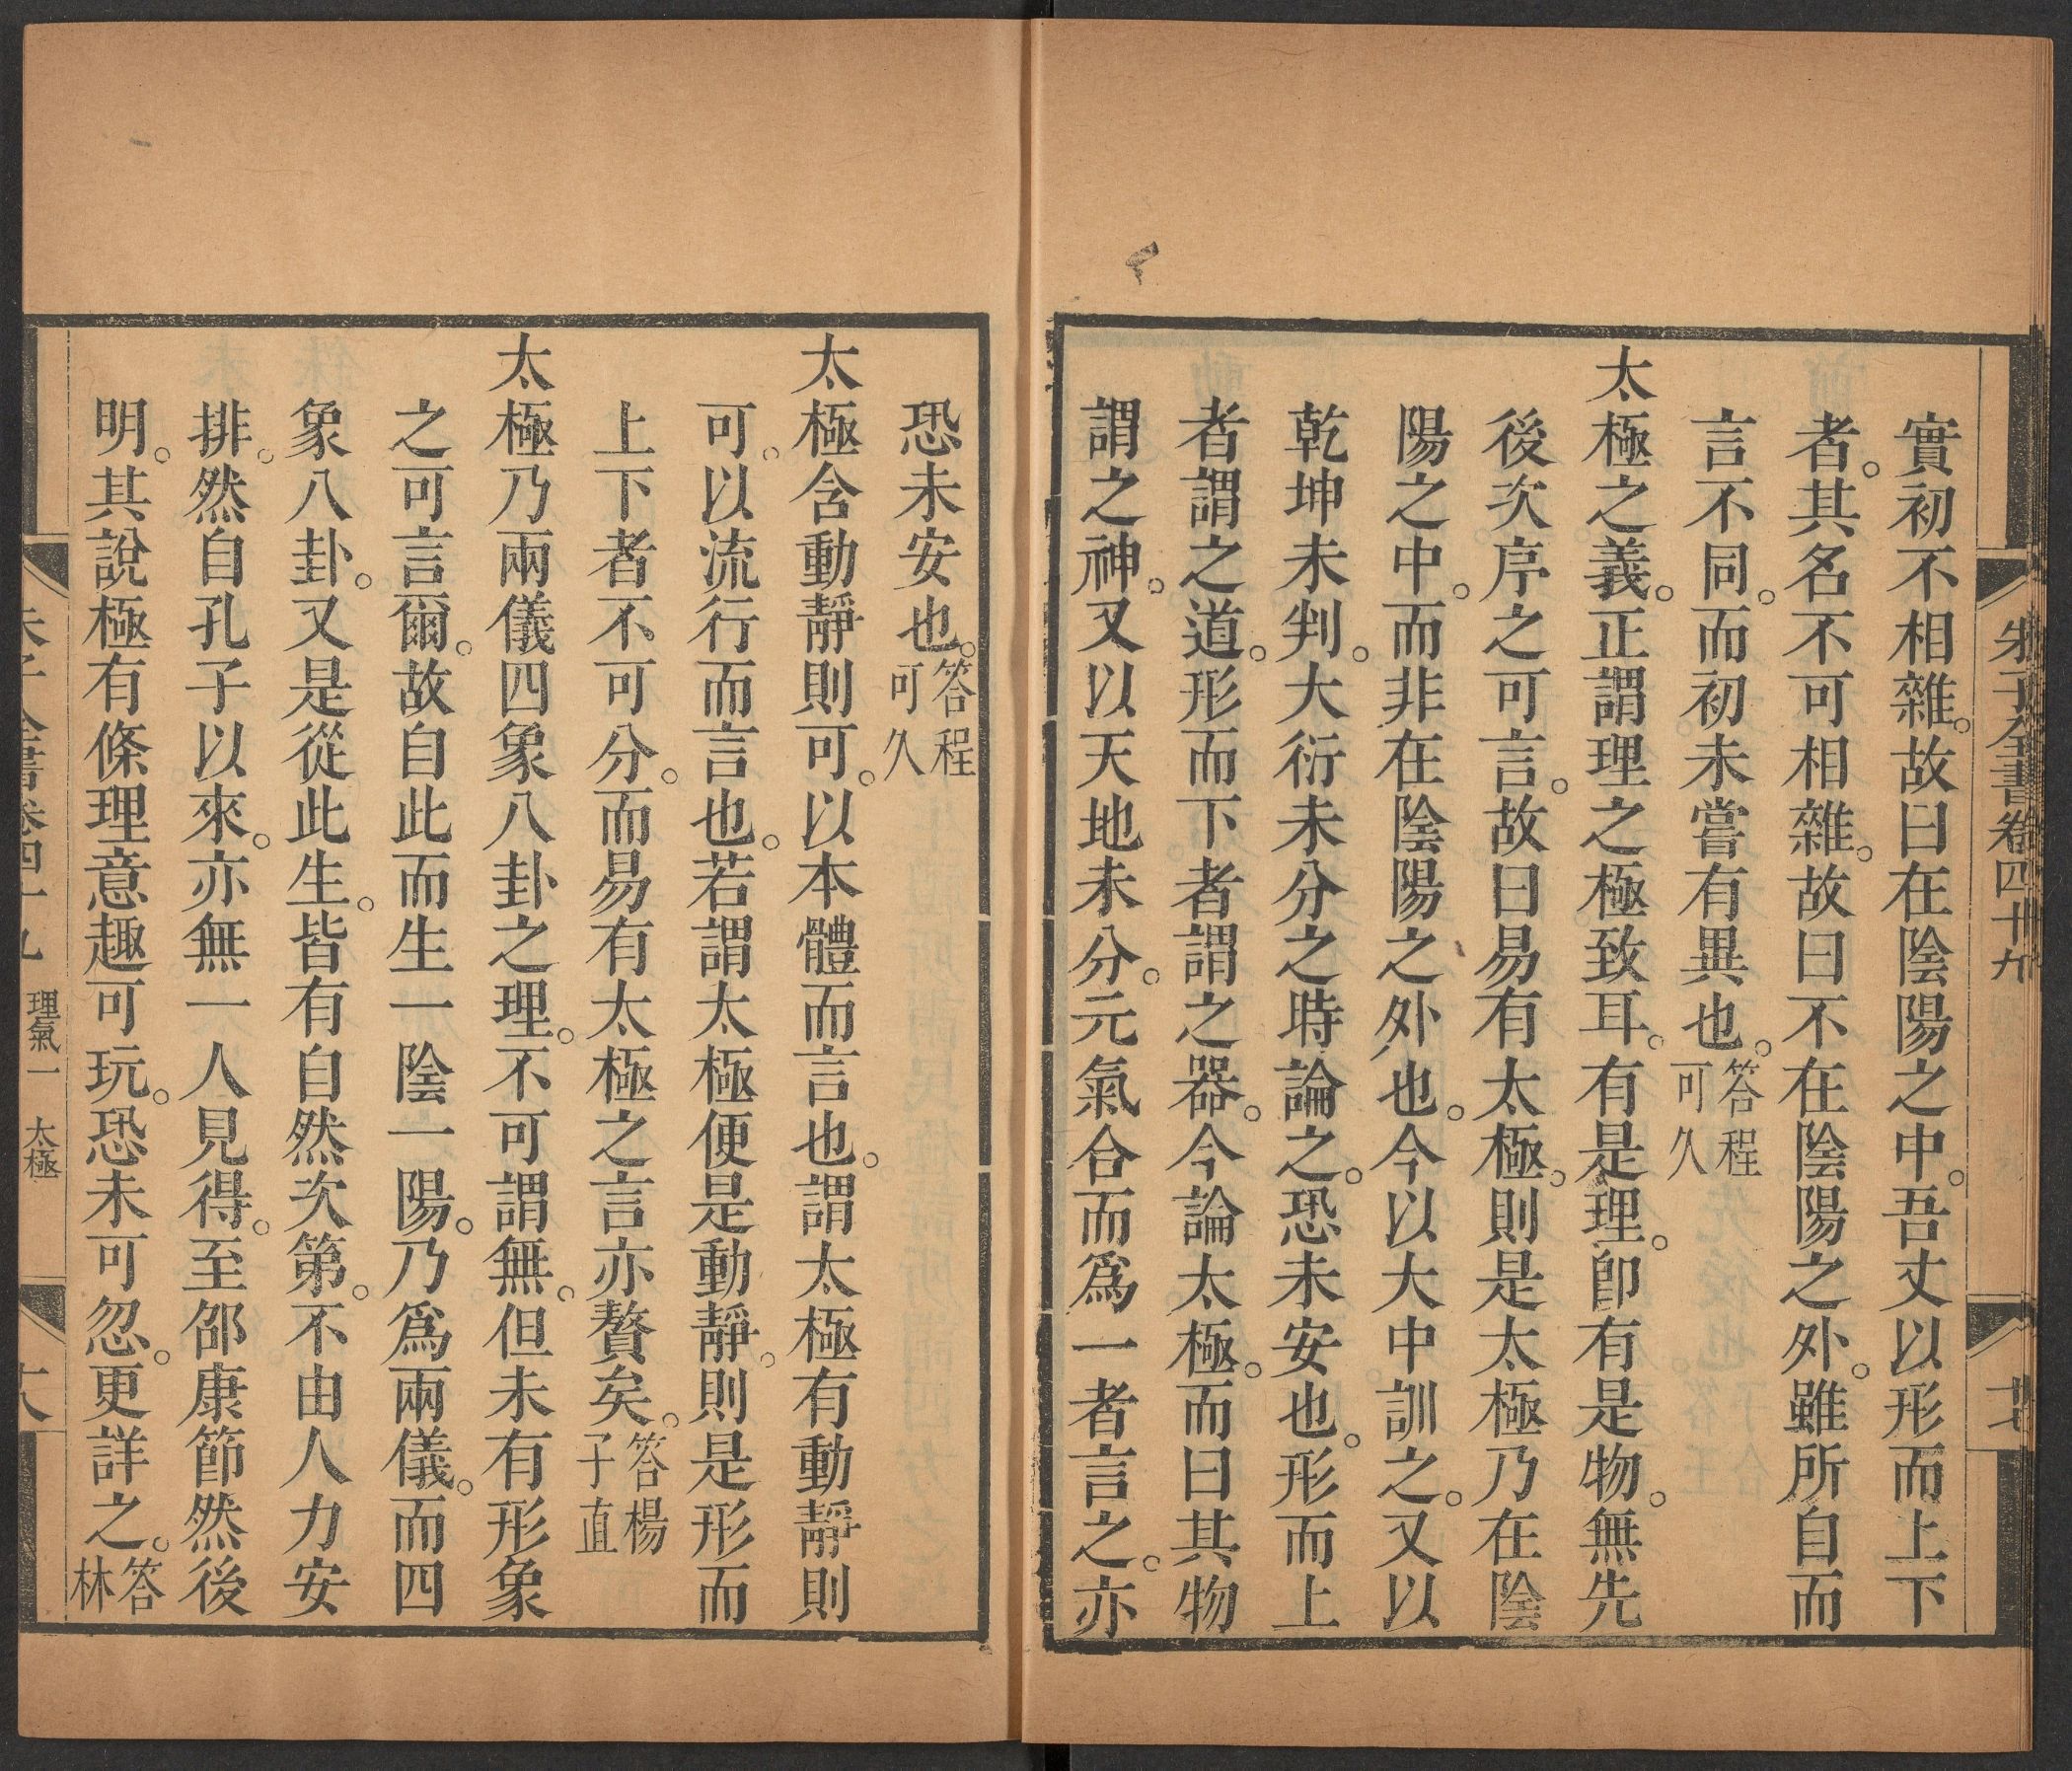 朱子全書卷四十九
十七
實初不相雜。故曰在陰陽之中。吾丈以形而上下
者。其名不可相雜。故曰不在陰陽之外。雖所自而
言不同。而初未嘗有異也。答程可久
太極之義。正謂理之極致耳。有是理。卽有是物。無先
後次序之可言。故曰易有太極。則是太極乃在陰
陽之中。而非在陰陽之外也。今以大中訓之。又以
乾坤未判。大衍未分之時論之。恐未安也。形而上
者謂之道。形而下者謂之器。今論太極。而曰其物
謂之神。又以天地未分。元氣合而爲一者言之。亦
恐未安也。答程可久
太極含動靜則可。以本體而言也。謂太極有動靜則
可。以流行而言也。若謂太極便是動靜。則是形而
上下者不可分。而易有太極之言亦贅矣。答楊子直
太極乃兩儀四象八卦之理。不可謂無。但未有形象
之可言爾。故自此而生一陰一陽。乃爲兩儀。而四
象八卦。又是從此生。皆有自然次第。不由人力安
排。然自孔子以來。亦無一人見得。至邵康節然後
明。其說極有條理意趣可玩。恐未可忽。更詳之。答林
朱子全書卷四十九 理氣一 太極
十八